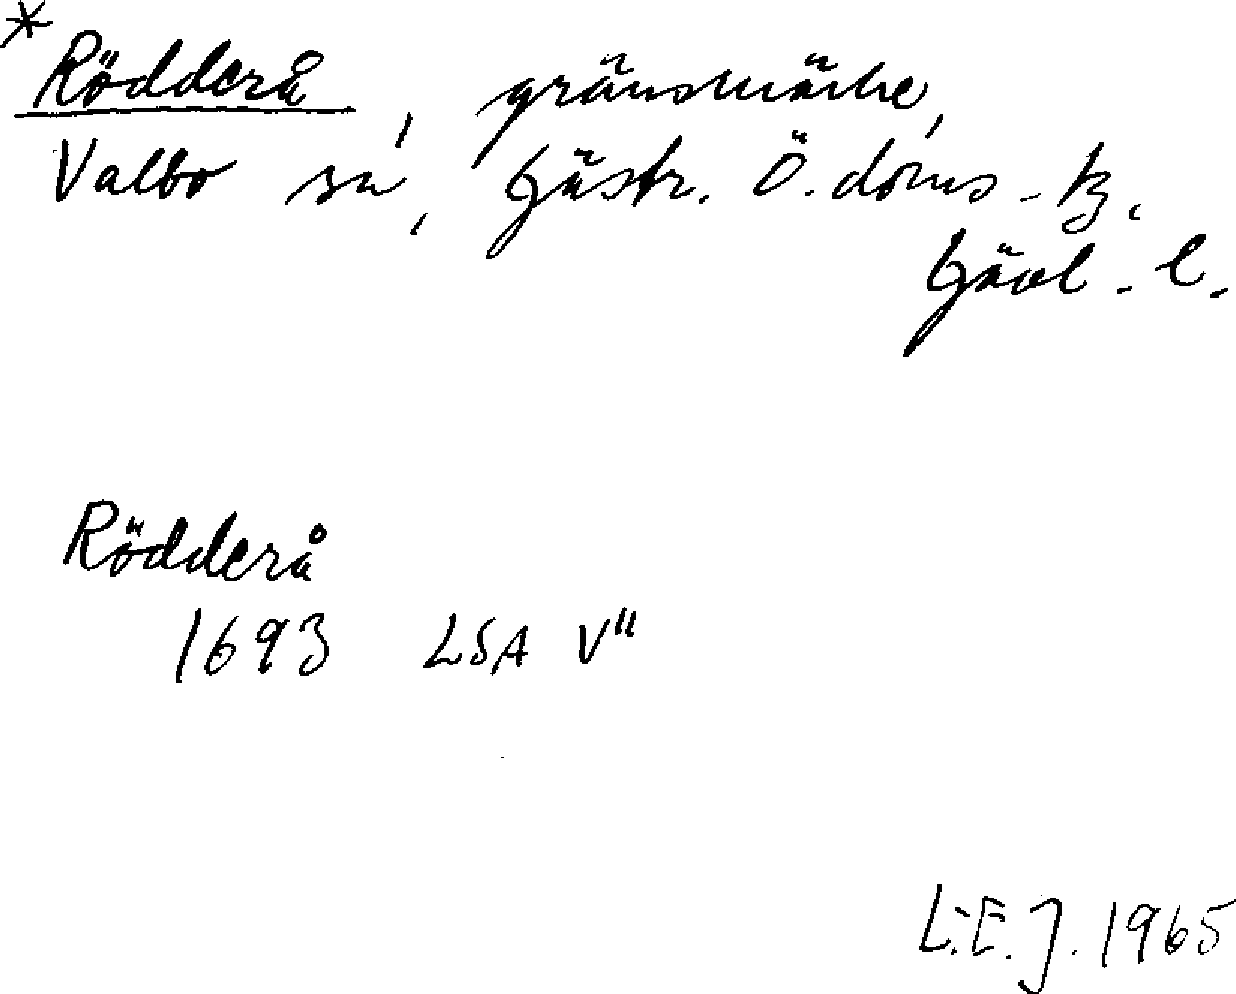 * Rödderå, gränsmärke,
Valbo sn, Gästr. Ö. doms-tg.
Gävl. l.
Rödderå
1693 LSA V"
L.E.J. 1965